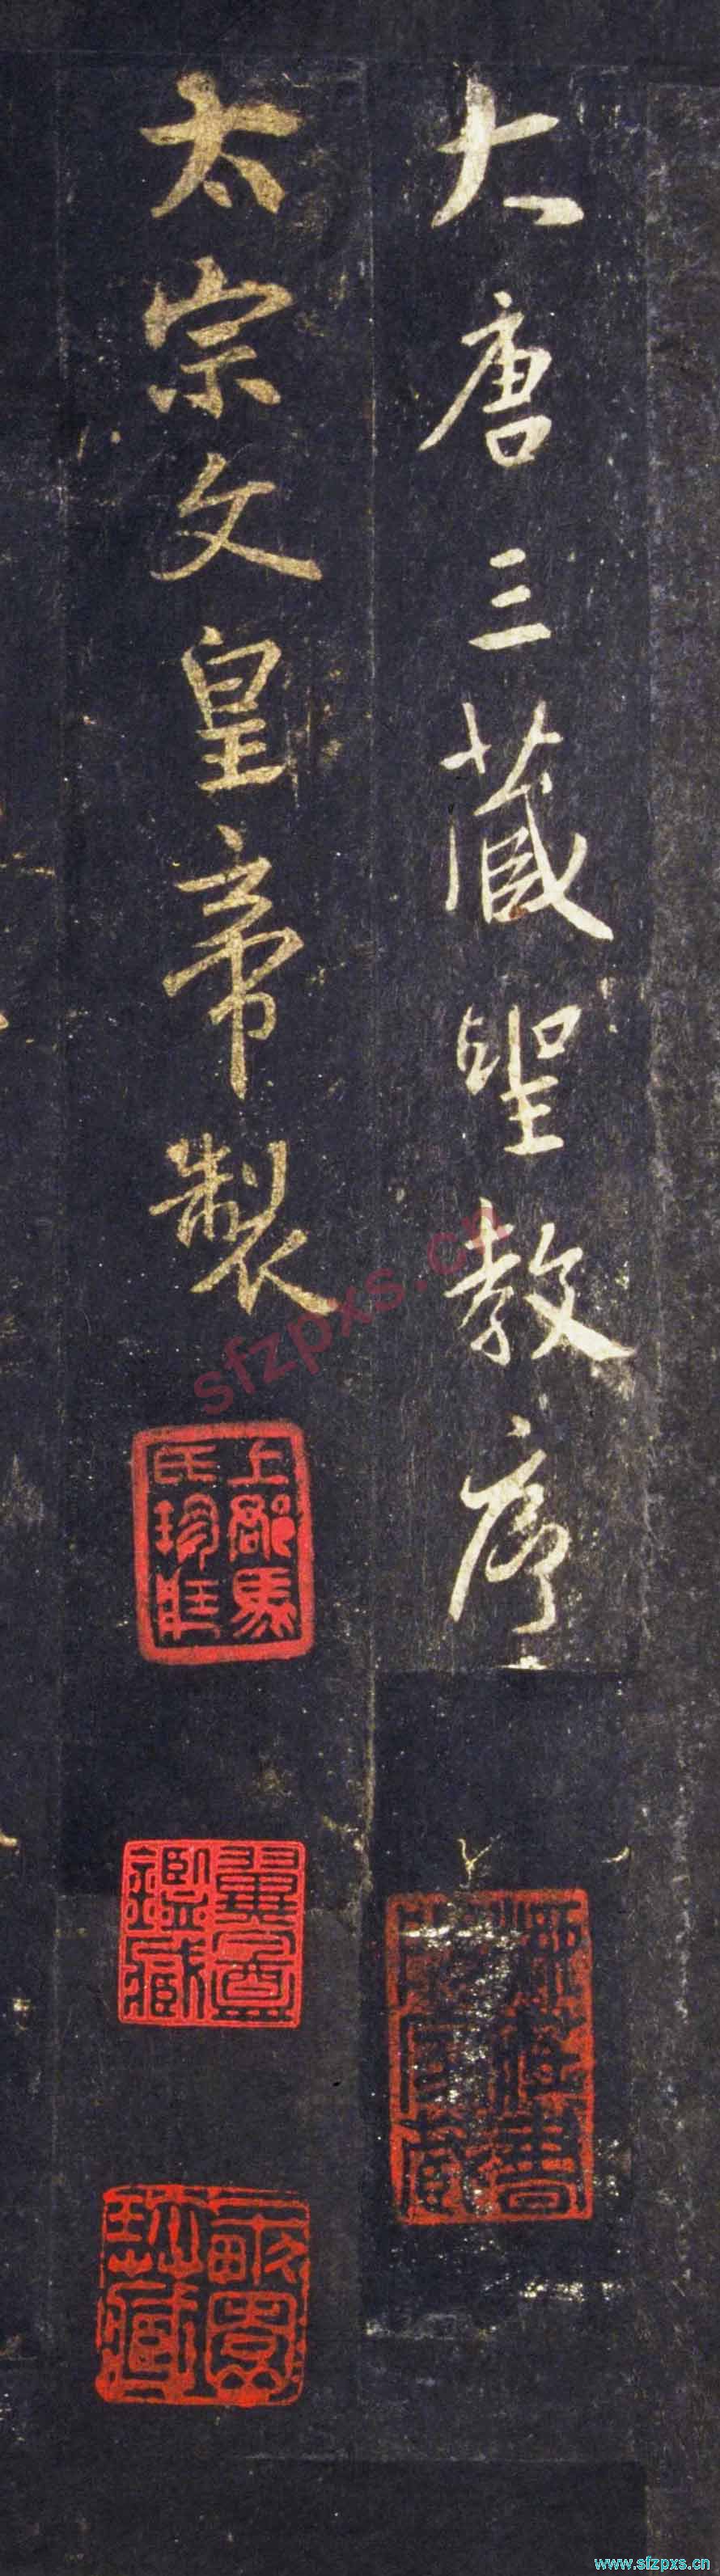 大唐三藏聖教序
太宗文皇帝製
上郡馬氏珍賍
翼盦鑑藏
sfzpxs.cn
www.sfzpxs.cn